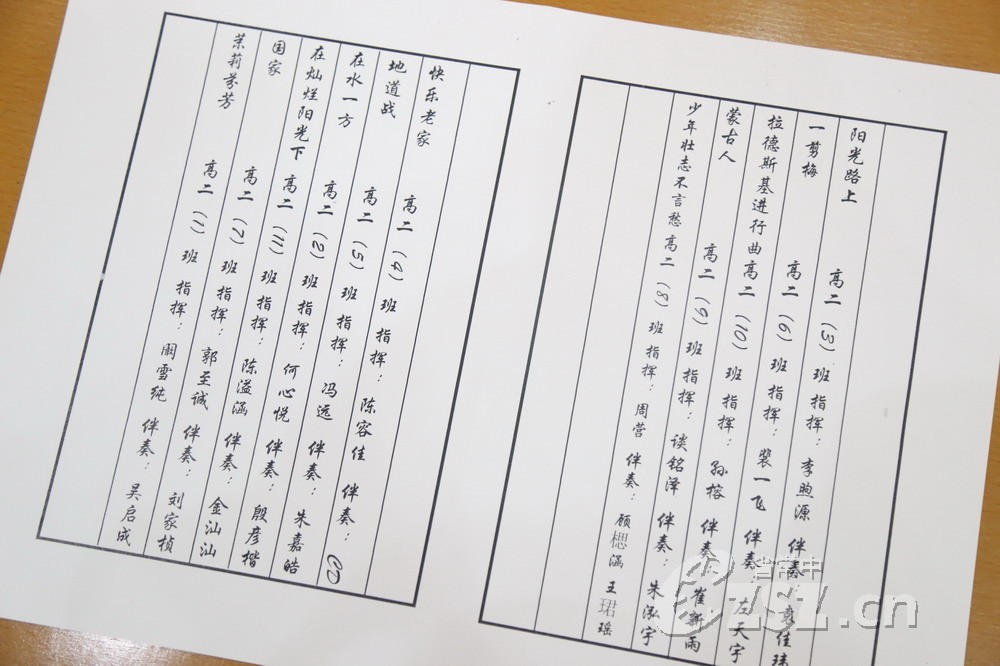 阳光路上 高二（3）班 指挥：李煦源 伴奏：袁佳
一剪梅 高二（6）班 指挥：裴一飞 伴奏：左天宇
拉德斯基进行曲 高二（10）班 指挥：孙榕 伴奏：崔新雨
蒙古人 高二（9）班 指挥：谈铭泽 伴奏：朱泓宇
少年壮志不言愁 高二（8）班 指挥：周营 伴奏：顾楒涵 王珺瑶
快乐老家 高二（4）班 指挥：陈容佳 伴奏：CD
地道战 高二（5）班 指挥：冯远 伴奏：朱嘉皓
在水一方 高二（2）班 指挥：何心悦 伴奏：殷彦楷
在灿烂阳光下 高二（11）班 指挥：陈溢涵 伴奏：金汕汕
国家 高二（7）班 指挥：郭至诚 伴奏：刘家桢
茉莉芬芳 高二（1）班 指挥：阚雪纯 伴奏：吴启成
ZSZ.cn